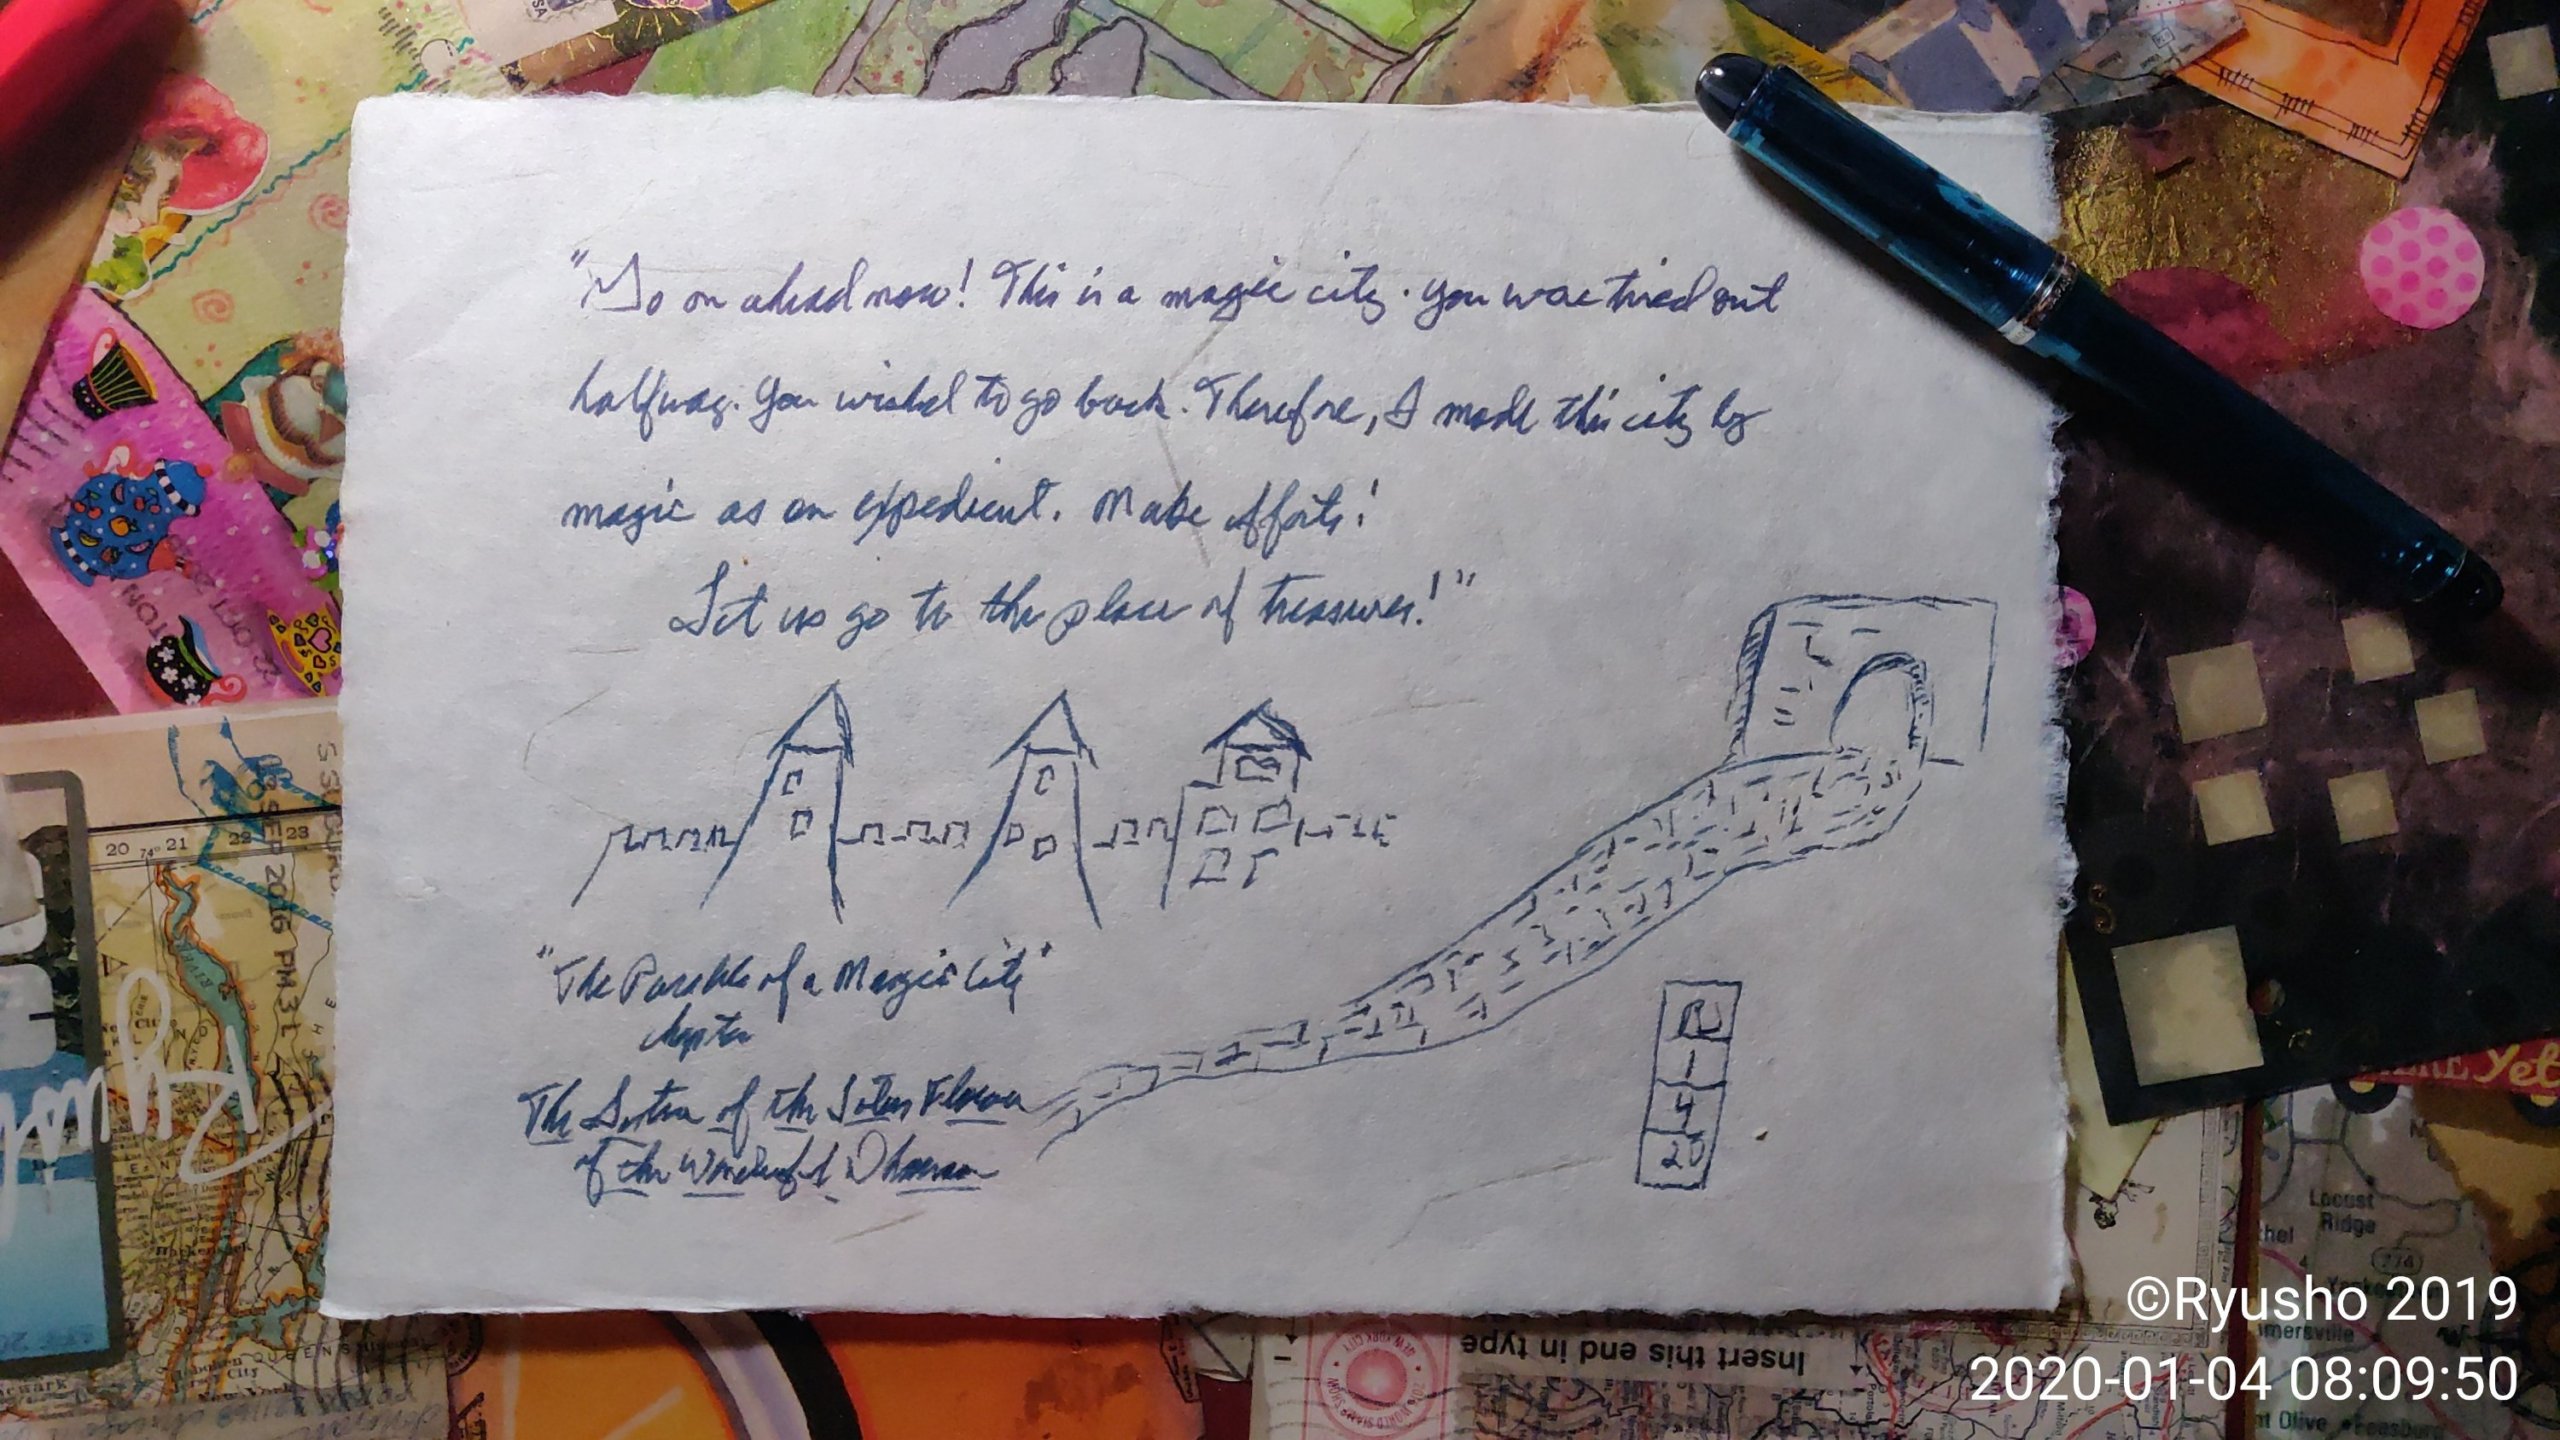 "Go on ahead now! This is a magic city. You were tired out
halfway. You wished to go back. Therefore, I made this city by
magic as an expedient. Make efforts!
Let us go to the place of treasures!"
"The Parable of a Magic City"
chapter
The Sutra of the Lotus Flower
of the Wonderful Dharma
R
1
4
20
©Ryusho 2019
2020-01-04 08:09:50
Insert this end in type
Locust
Ridge
774
Yet
20 74° 21 22 23
SEP 2016 PM 3 L
QUEENS